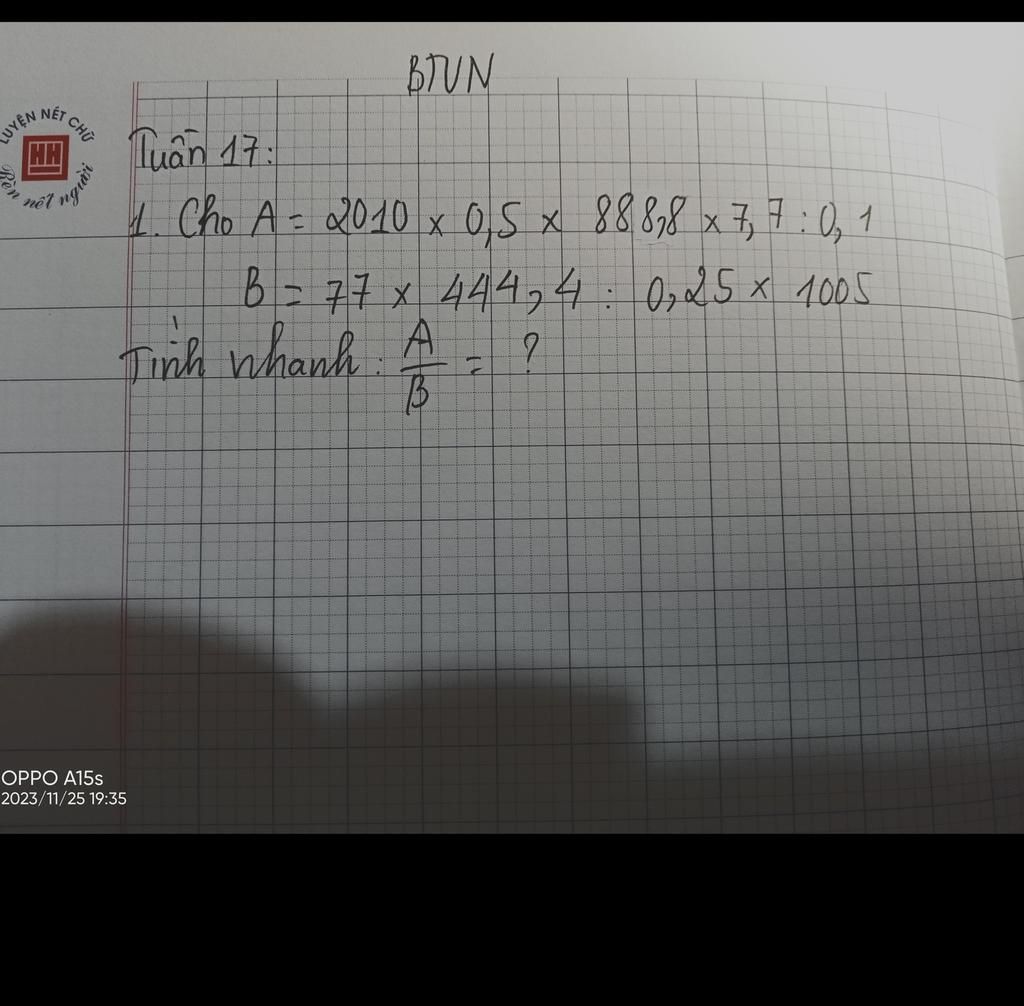 BTVN
LUYỆN NÉT CHỮ
HH
Rèn nết người
Tuần 17:
1. Cho A = 2010 x 0,5 x 888,8 x 7,7 : 0,1
B = 77 x 444,4 : 0,25 x 1005
Tính nhanh: A/B = ?
OPPO A15s
2023/11/25 19:35